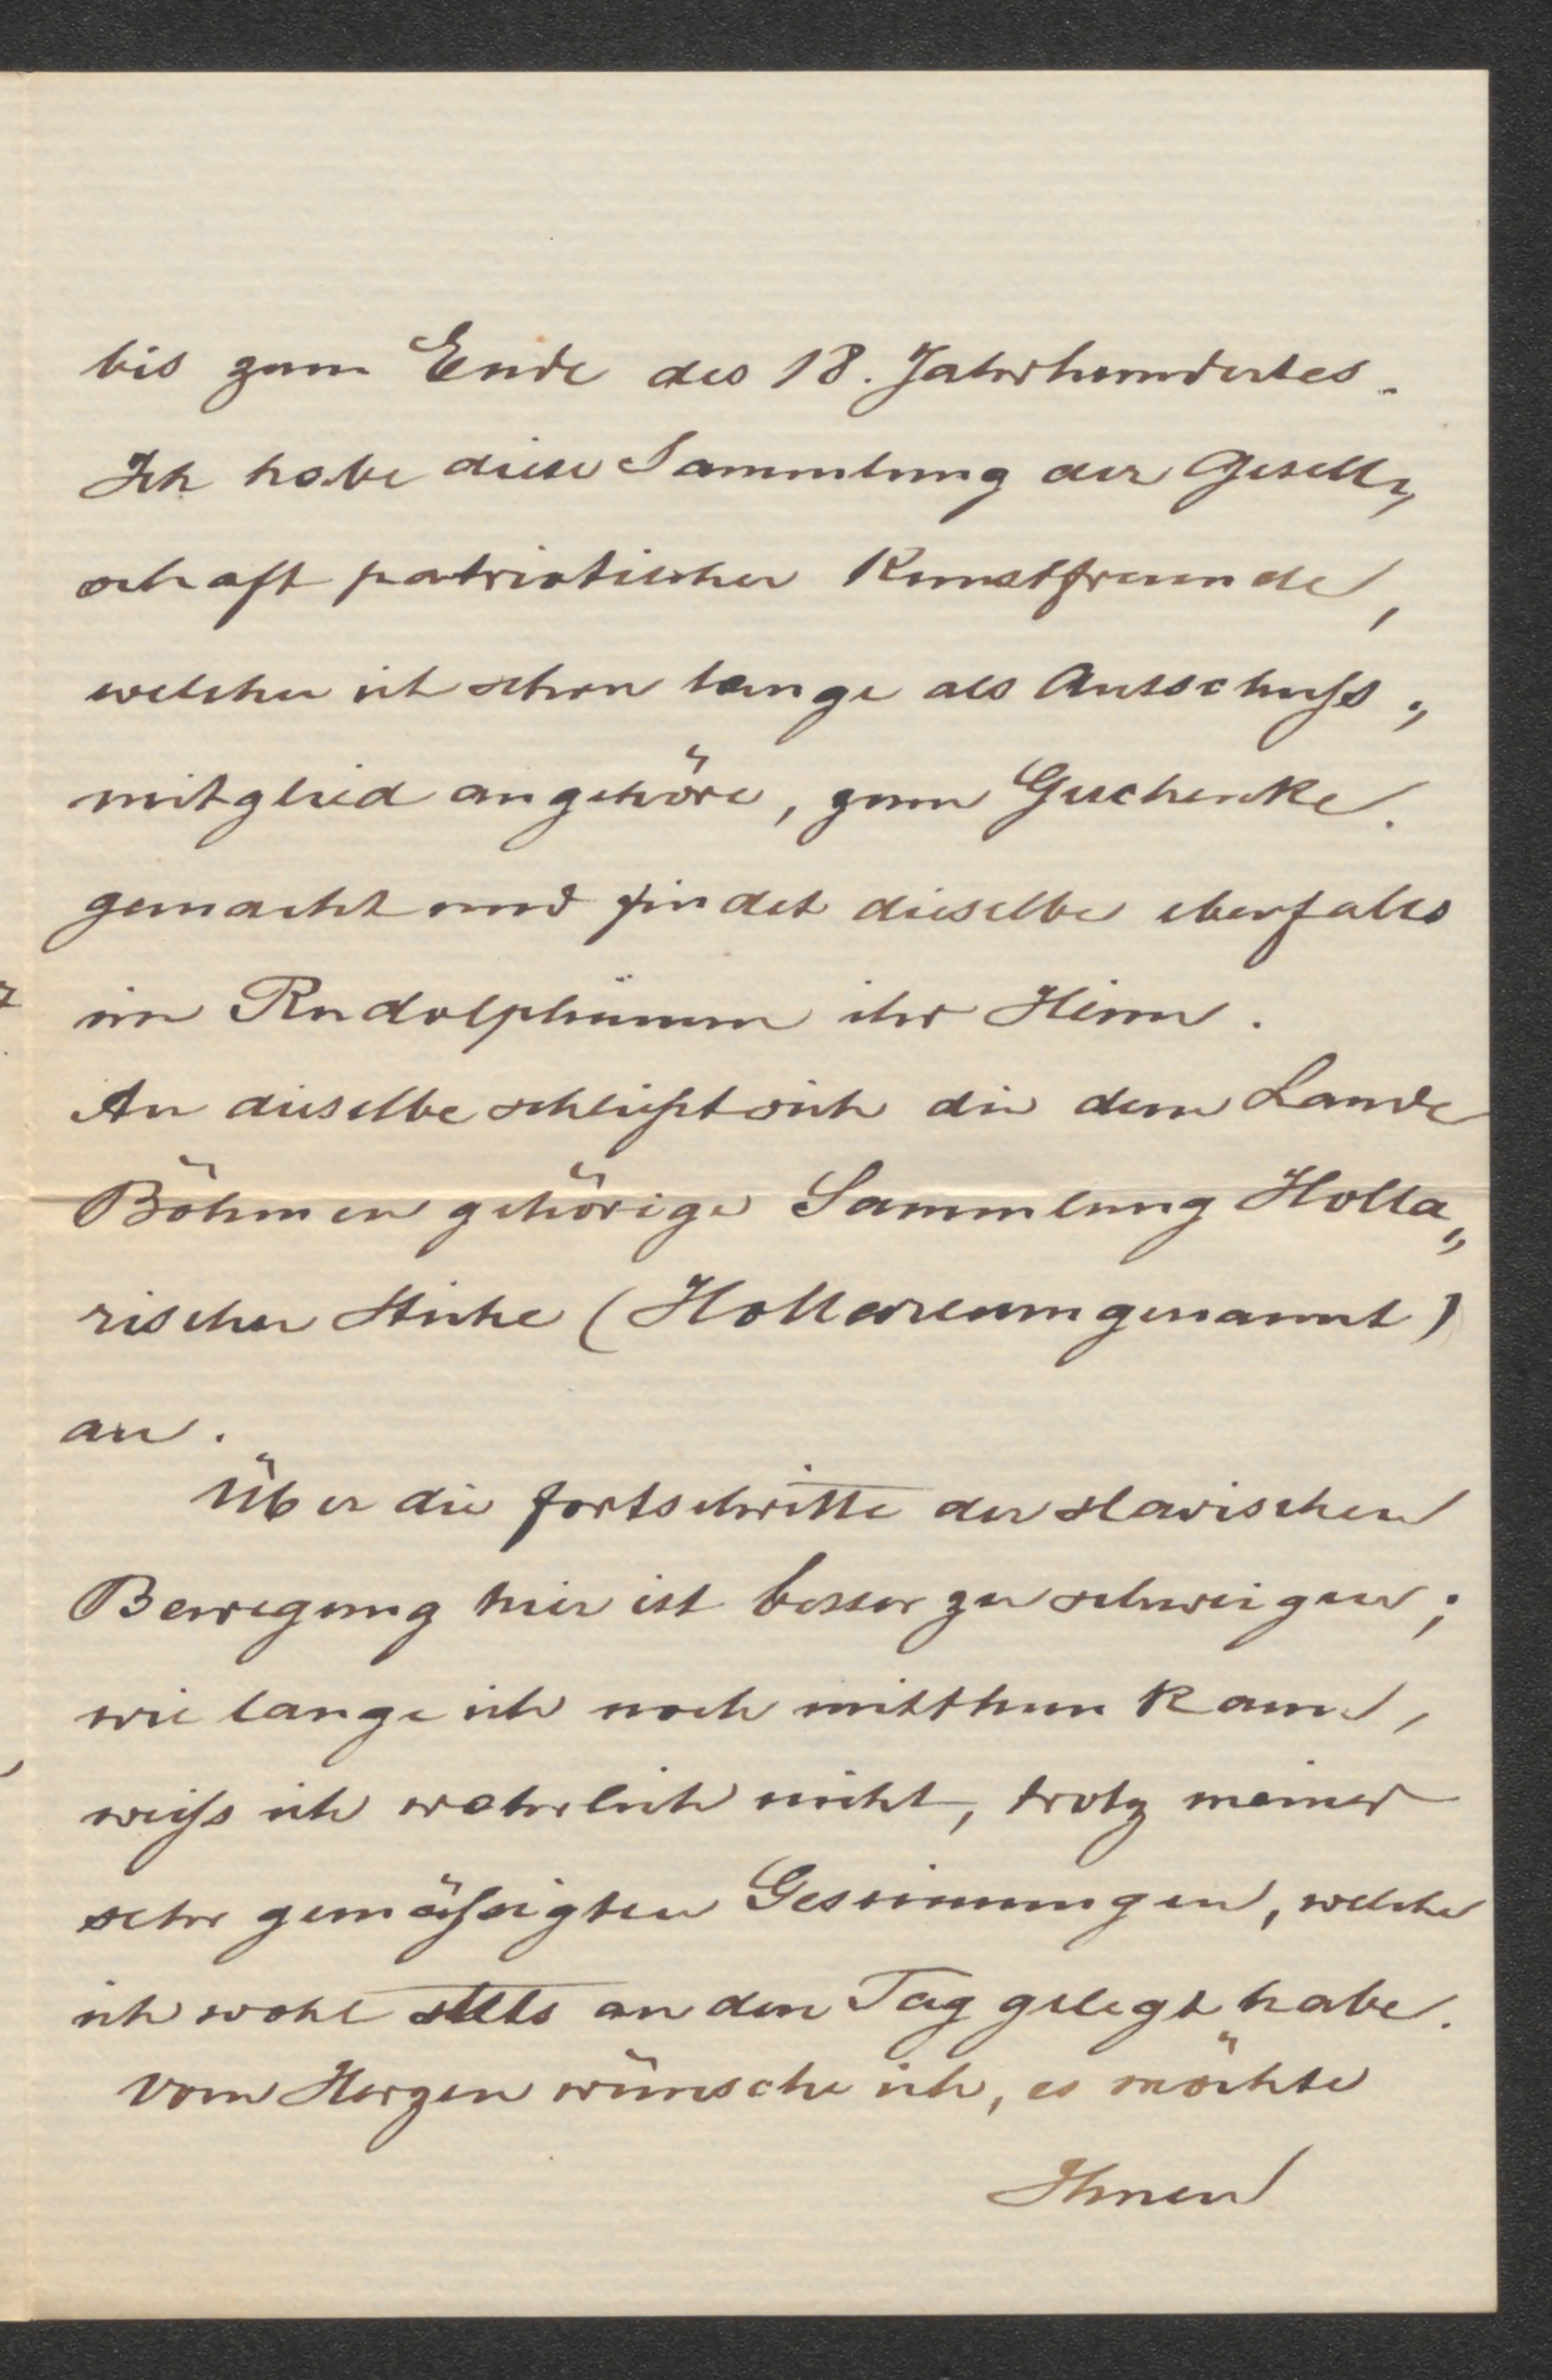 bis zum Ende des 18. Jahrhundertes.
Ich habe diese Sammlung der Gesell„
schaft patriotischer Kunstfreunde,
welcher ich schon lange als Ausschuss„
mitglied angehöre, zum Geschenke
gemacht und findet dieselbe ebenfalls
im Rudolphinum ihr Heim.
An dieselbe schließt sich die dem Lande
Böhmen gehörige Sammlung Holla„
rischer Stiche (Hollareum genannt)
an.
Über die Fortschritte der slavischen
Bewegung hier ist besser zu schweigen;
wie lange ich noch mitthun kann,
weiß ich wahrlich nicht, trotz meiner
sehr gemäßigten Gesinnungen, welche
ich wohl stets an den Tag gelegt habe.
Vom Herzen wünsche ich, es möchte
Ihnen